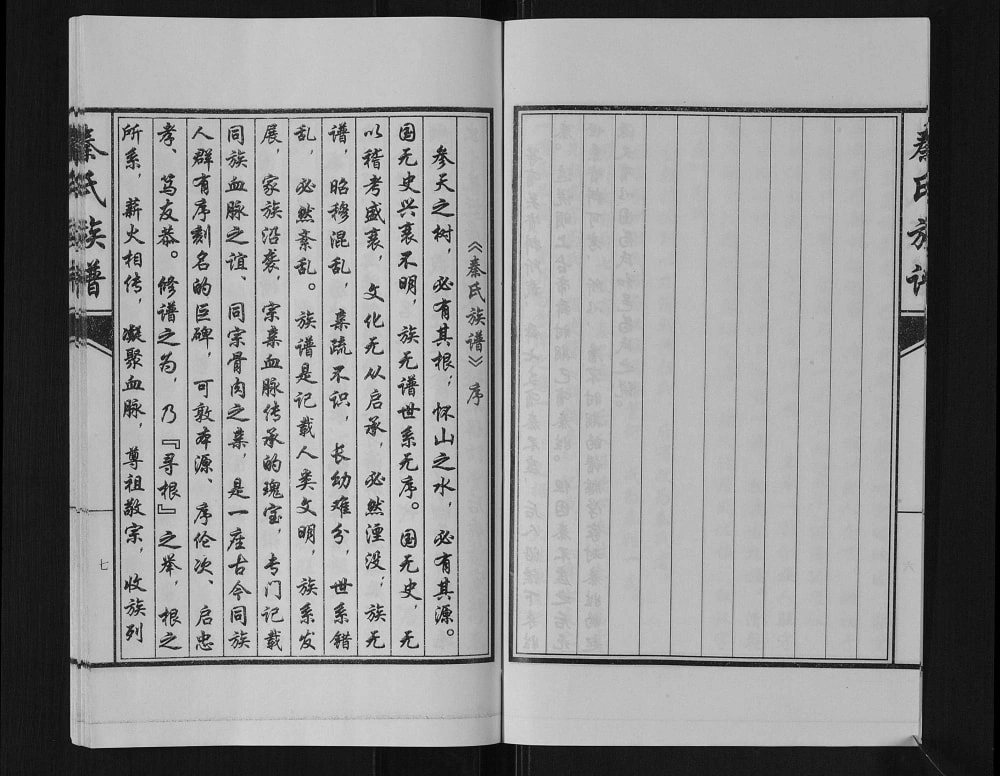 秦氏族谱
六
《秦氏族谱》序
参天之树，必有其根；怀山之水，必有其源。
国无史兴衰不明，族无谱世系无序。国无史，无
以稽考盛衰，文化无从启承，必然湮没；族无
谱，昭穆混乱，亲疏不识，长幼难分，世系错
乱，必然紊乱。族谱是记载人类文明，族系发
展，家族沿袭，宗亲血脉传承的瑰宝，专门记载
同族血脉之谊、同宗骨肉之亲，是一座古今同族
人群有序刻名的巨碑，可敦本源、序伦次、启忠
孝、笃友恭。修谱之为，乃『寻根』之举，根之
所系，薪火相传，凝聚血脉，尊祖敬宗，收族列
秦氏族谱
七